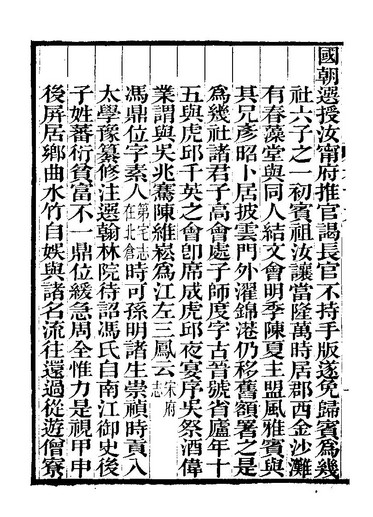 國朝選授汝甯府推官謁長官不持手版遂免歸賓為幾
社六子之一初賓祖汝讓當隆萬時居郡西金沙灘
有春藻堂與同人結文會明季陳夏主盟風雅賓與
其兄彥昭卜居披雲門外濯錦港仍移舊額署之是
為幾社諸君子高會處子師度字古晉號省廬年十
五與虎邱千英之會卽席成虎邱夜宴序吳祭酒偉
業謂與吳兆騫陳維崧為江左三鳳云宋府志
馮鼎位字素人第宅志在北倉時可孫明諸生崇禎時貢入
太學豫纂修注選翰林院待詔馮氏自南江御史後
子姓蕃衍貧富不一鼎位緩急周全惟力是視甲申
後屏居鄉曲水竹自娛與諸名流往還過從遊僧寮